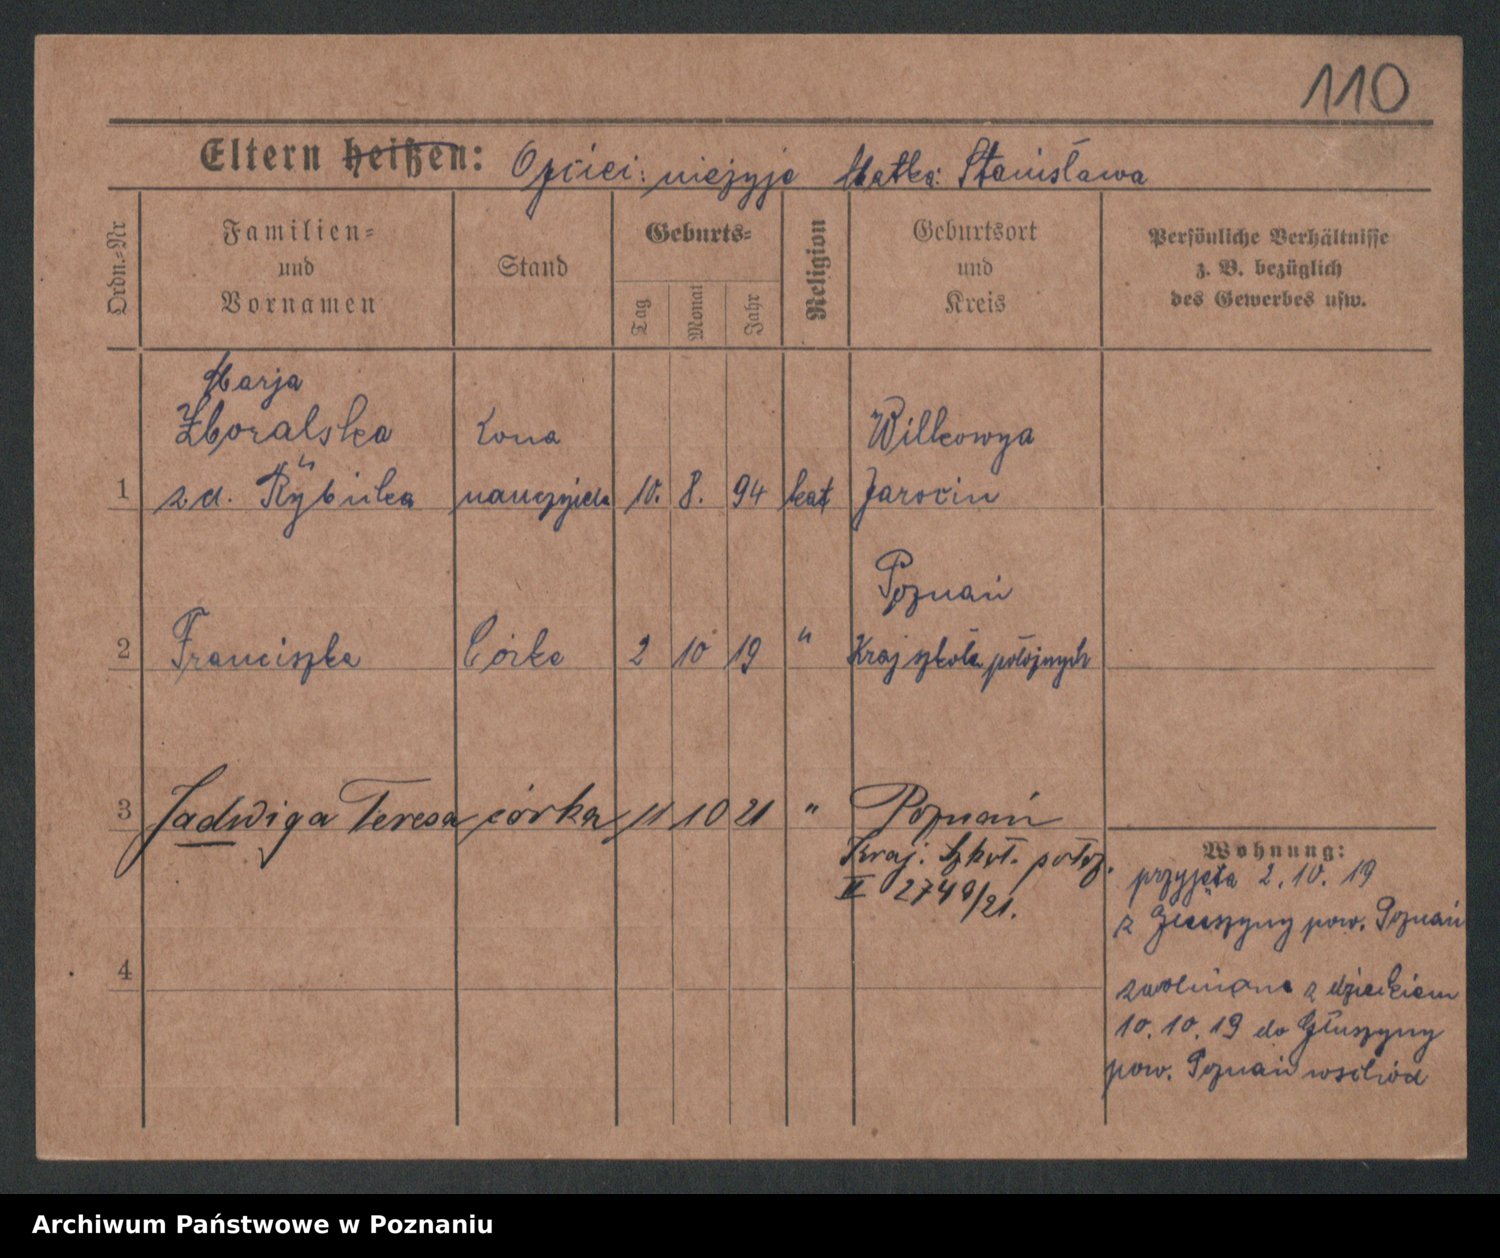 110
Eltern heißen: Ojciec: nieżyje Matka: Stanisława
Ordn.=Nr
Familien=
und
Vornamen
Stand
Geburts=
Tag
Monat
Jahr
Religion
Geburtsort
und
Kreis
Persönliche Verhältnisse
z. B. bezüglich
des Gewerbes usw.
Marja
Zboralska żona Wilkowyja
1 zd. Rybicka nauczyciela 10. 8. 94 kat Jarocin
Poznań
2 Franciszka Córka 2 10 19 " Kraj szkoła położnych
3 Jadwiga Teresa córka 11 10 21 " Poznań
Kraj. Szkoł. położ.
II 2740/21.
4
Wohnung:
przyjęta 2. 10. 19
z Głuszyny pow. Poznań
zwolniona z dzieckiem
10. 10. 19 do Głuszyny
pow. Poznań wschód
Archiwum Państwowe w Poznaniu